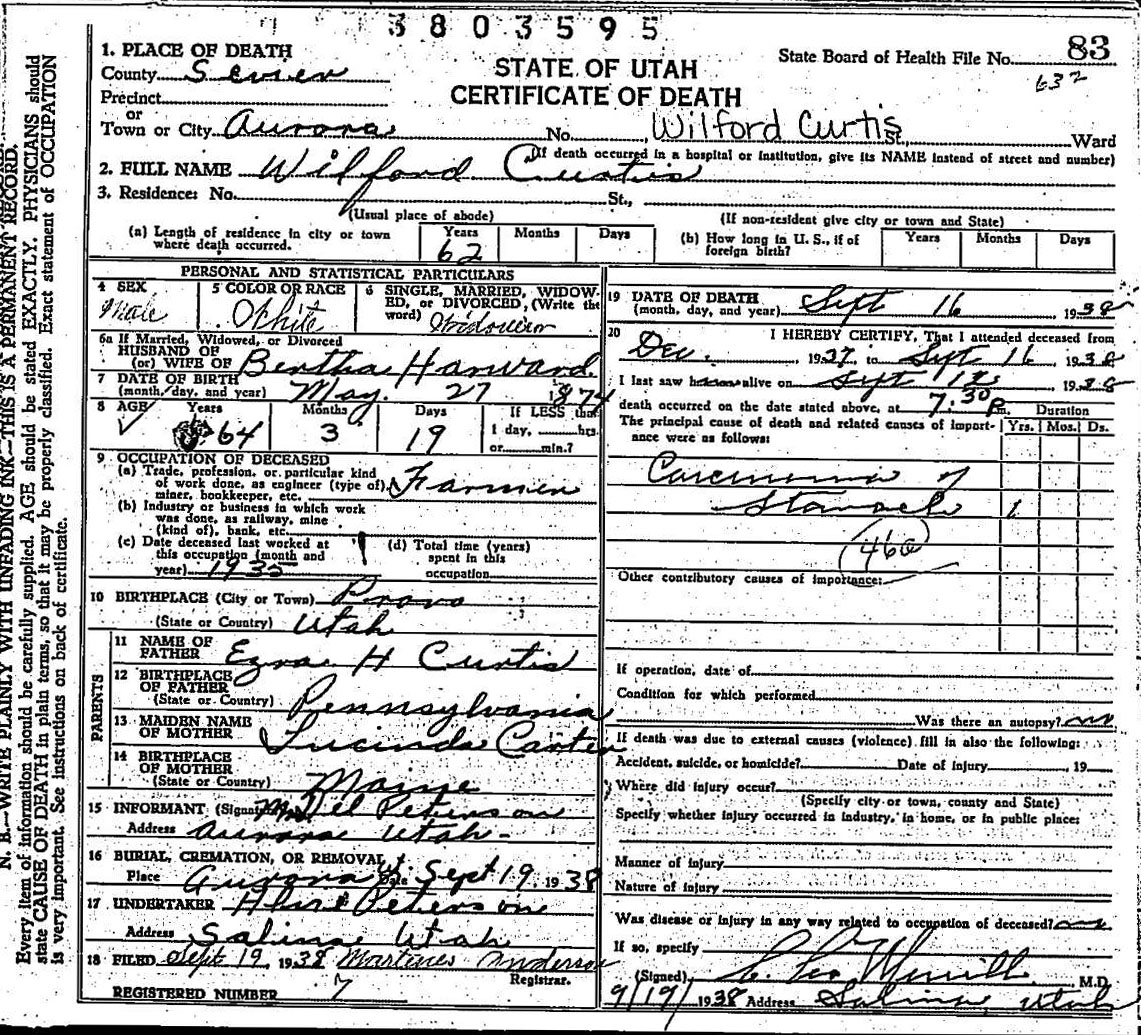 3803595
1. PLACE OF DEATH
County Sevier
Precinct
or
Town or City Aurora No. Wilford Curtis St., Ward
STATE OF UTAH
CERTIFICATE OF DEATH
State Board of Health File No. 83
632
(If death occurred in a hospital or institution, give its NAME instead of street and number)
2. FULL NAME Wilford Curtis
3. Residence: No. St.,
(Usual place of abode) (If non-resident give city or town and State)
(a) Length of residence in city or town where death occurred. Years 62 Months Days
(b) How long in U. S., if of foreign birth? Years Months Days
PERSONAL AND STATISTICAL PARTICULARS
4 SEX Male
5 COLOR OR RACE White
6 SINGLE, MARRIED, WIDOWED, or DIVORCED, (Write the word) Widower
6a If Married, Widowed, or Divorced
HUSBAND OF
(or) WIFE OF Bertha Harward
7 DATE OF BIRTH
(month, day, and year) May 27 1874
8 AGE Years 64 Months 3 Days 19 If LESS than
1 day, hrs.
or min.?
9 OCCUPATION OF DECEASED
(a) Trade, profession, or particular kind
of work done, as engineer (type of), Farmer
miner, bookkeeper, etc.
(b) Industry or business in which work
was done, as railway, mine
(kind of), bank, etc.
(c) Date deceased last worked at
this occupation (month and
year) 1935
(d) Total time (years)
spent in this
occupation
10 BIRTHPLACE (City or Town) Provo
(State or Country) Utah
PARENTS
11 NAME OF
FATHER Ezra H Curtis
12 BIRTHPLACE
OF FATHER
(State or Country) Pennsylvania
13 MAIDEN NAME
OF MOTHER Lucinda Carter
14 BIRTHPLACE
OF MOTHER
(State or Country) Maine
15 INFORMANT (Signature) Peterson
Address Aurora Utah
16 BURIAL, CREMATION, OR REMOVAL
Place Aurora Ut Date Sept 19, 1938
17 UNDERTAKER Peterson
Address Salina Utah
18 FILED Sept 19, 1938 Anderson
Registrar.
REGISTERED NUMBER 7
19 DATE OF DEATH
(month, day, and year) Sept 16 1938
20 I HEREBY CERTIFY, That I attended deceased from
Dec. 1937, to Sept 16 1938
I last saw alive on Sept 1938
death occurred on the date stated above, at 7:30 Pm.
The principal cause of death and related causes of importance were as follows:
Duration
Yrs. Mos. Ds.
Carcinoma of
Stomach 1
460
Other contributory causes of importance:
If operation, date of
Condition for which performed
Was there an autopsy? no
If death was due to external causes (violence) fill in also the following:
Accident, suicide, or homicide? Date of injury 19
Where did injury occur?
(Specify city or town, county and State)
Specify whether injury occurred in industry, in home, or in public place:
Manner of injury
Nature of injury
Was disease or injury in any way related to occupation of deceased? no
If so, specify
(Signed) Merrill M.D.
9/19/1938 Address Salina, Utah
N. B.—WRITE PLAINLY WITH UNFADING INK—THIS IS A PERMANENT RECORD.
Every item of information should be carefully supplied. AGE should be stated EXACTLY. PHYSICIANS should
state CAUSE OF DEATH in plain terms, so that it may be properly classified. Exact statement of OCCUPATION
is very important. See instructions on back of certificate.